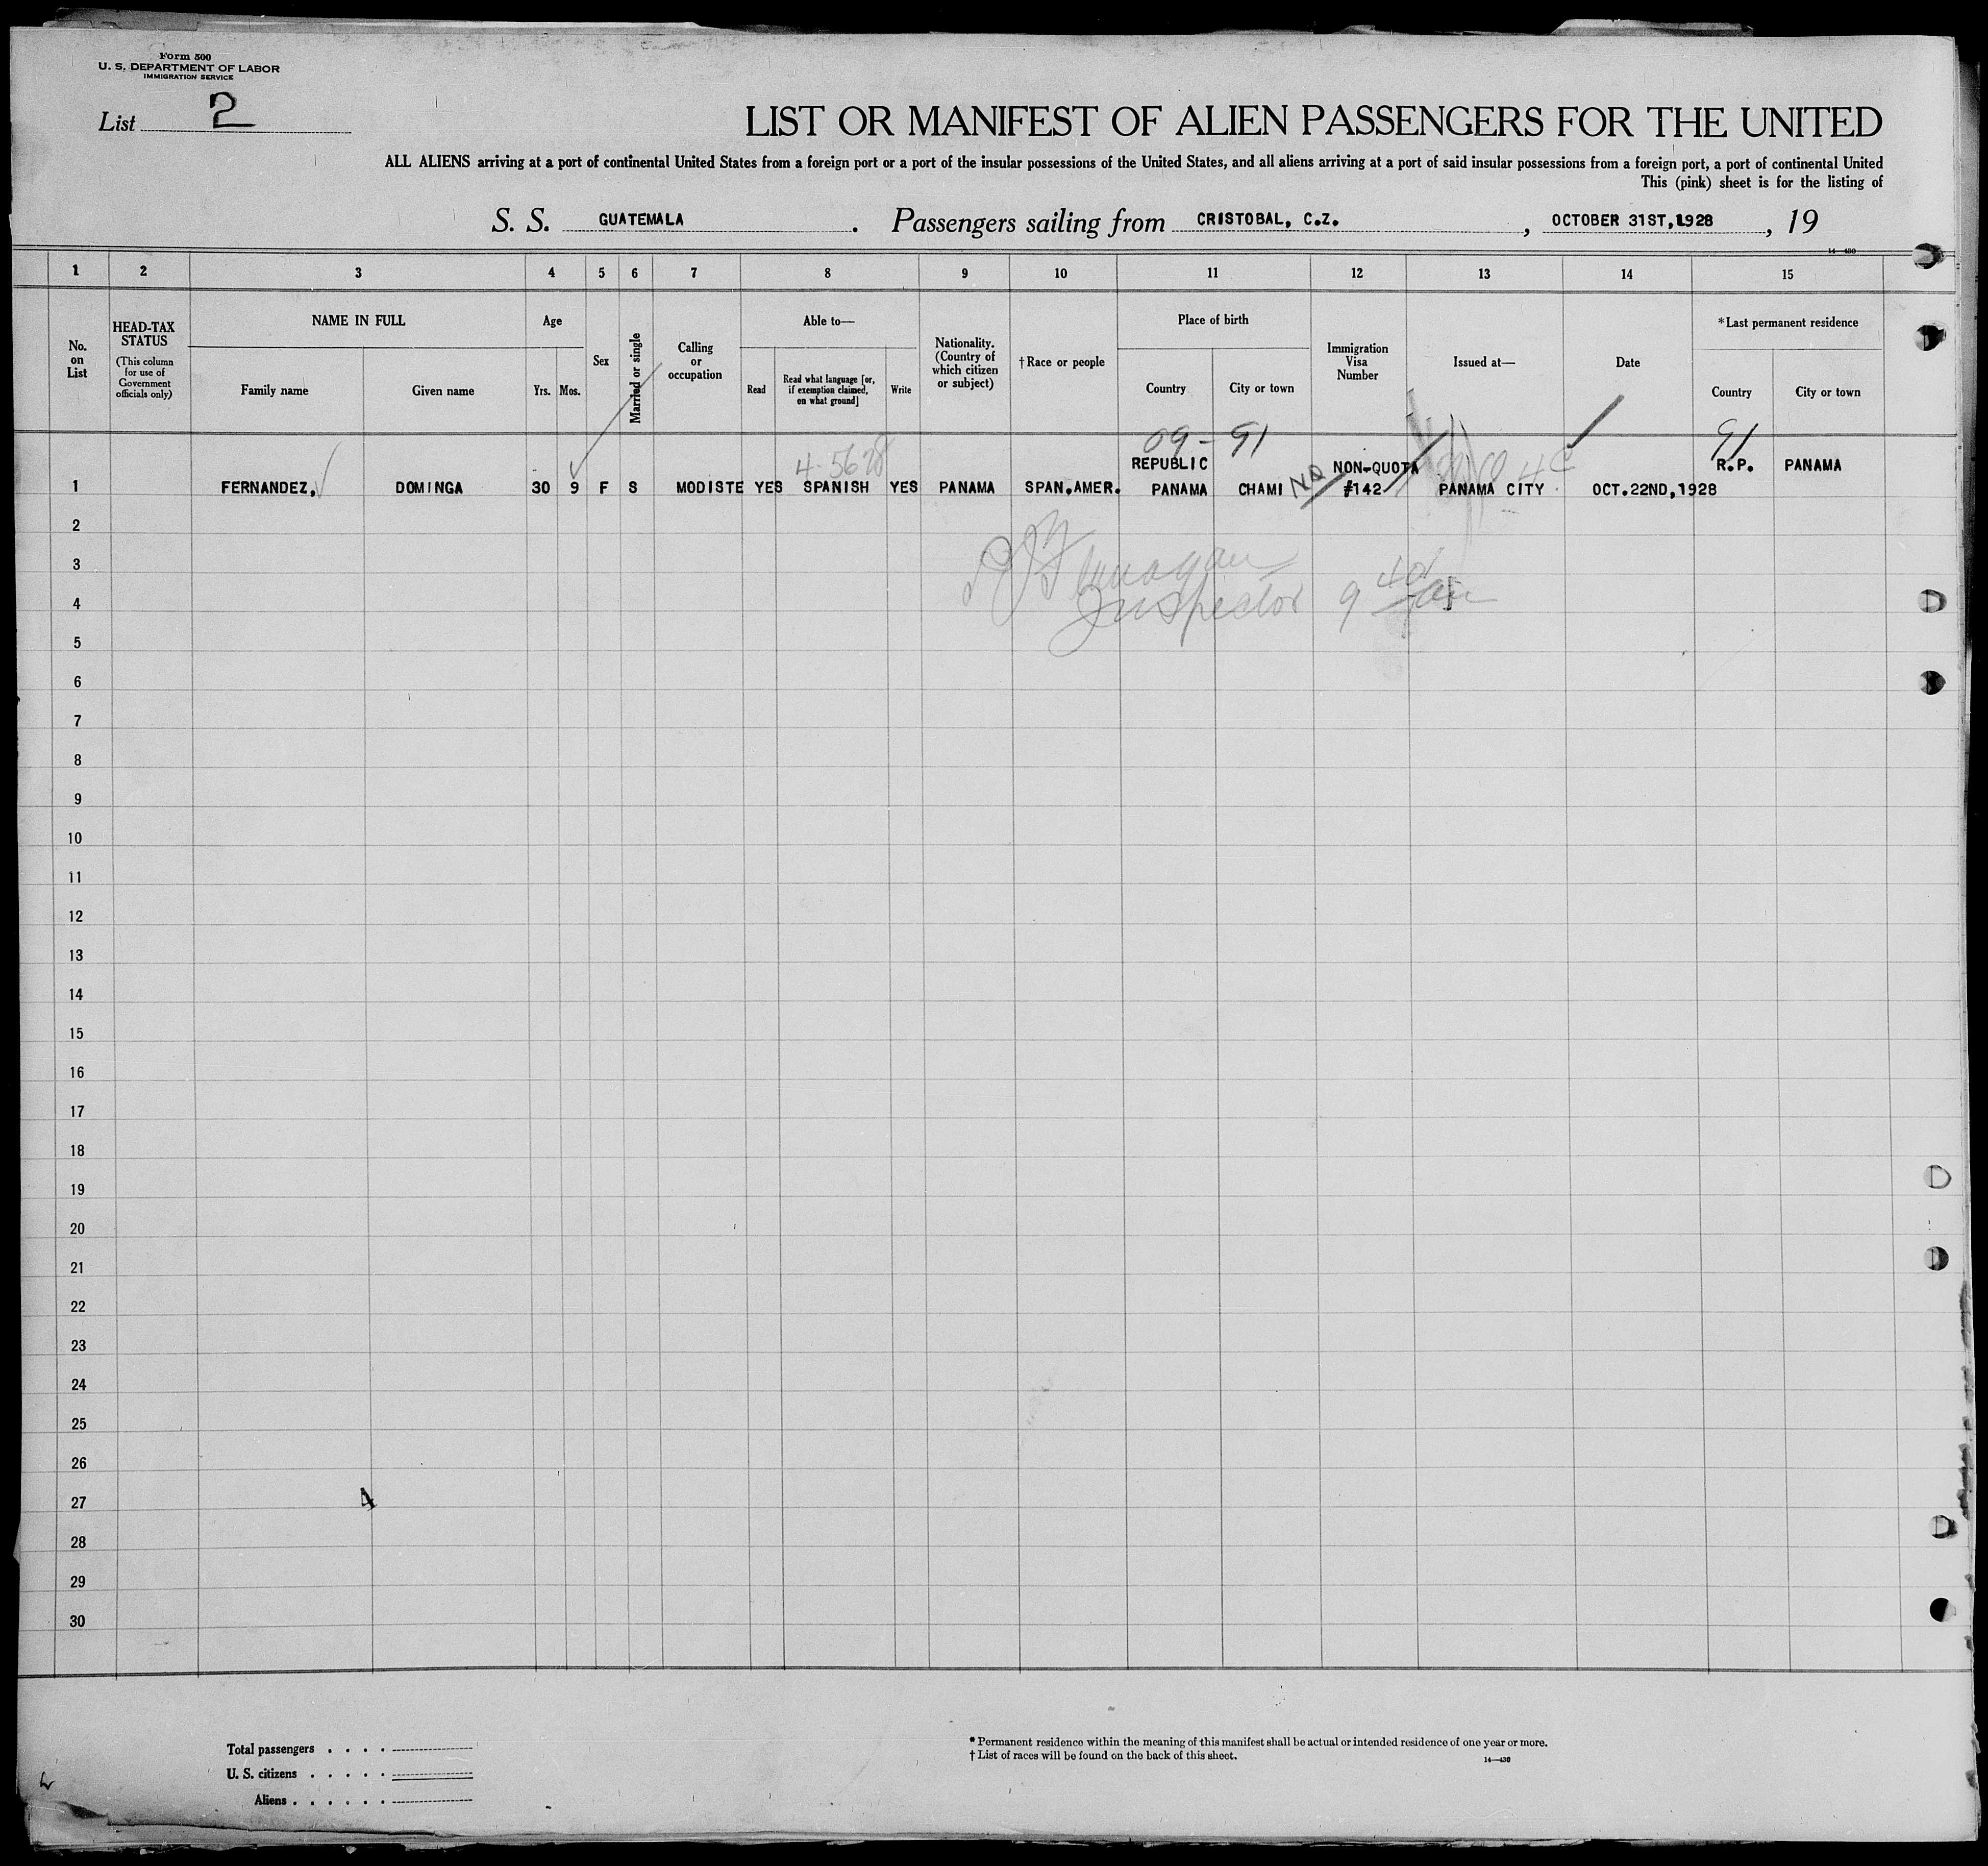 Form 500
U. S. DEPARTMENT OF LABOR
IMMIGRATION SERVICE
List 2
LIST OR MANIFEST OF ALIEN PASSENGERS FOR THE UNITED
ALL ALIENS arriving at a port of continental United States from a foreign port or a port of the insular possessions of the United States, and all aliens arriving at a port of said insular possessions from a foreign port, a port of continental United
This (pink) sheet is for the listing of
S. S. GUATEMALA . Passengers sailing from CRISTOBAL, C.Z. , OCTOBER 31ST,1928 , 19
14—430
1 2 3 4 5 6 7 8 9 10 11 12 13 14 15
No. on List
HEAD-TAX STATUS
(This column for use of Government officials only)
NAME IN FULL
Family name Given name
Age
Yrs. Mos.
Sex
Married or single
Calling or occupation
Able to—
Read
Read what language [or, if exemption claimed, on what ground]
Write
Nationality. (Country of which citizen or subject)
†Race or people
Place of birth
Country City or town
Immigration Visa Number
Issued at—
Date
*Last permanent residence
Country City or town
09 - 91 91
4-5628 REPUBLIC NON-QUOTA 4c R.P. PANAMA
1 FERNANDEZ, DOMINGA 30 9 F S MODISTE YES SPANISH YES PANAMA SPAN.AMER. PANAMA CHAMI NQ #142 PANAMA CITY OCT.22ND,1928
2
3 Flanagan
4 Inspector 9 40 am
5
6
7
8
9
10
11
12
13
14
15
16
17
18
19
20
21
22
23
24
25
26
27
28
29
30
Total passengers . . . .
U. S. citizens . . . . .
Aliens . . . . . .
* Permanent residence within the meaning of this manifest shall be actual or intended residence of one year or more.
† List of races will be found on the back of this sheet.
14—430